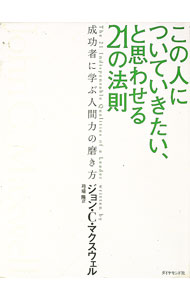 この人に
ついていきたい、
と思わせる
21の法則
成功者に学ぶ人間力の磨き方
The 21 Indispensable Qualities of a Leader written by
ジョン・C・マクスウェル
ダイヤモンド社